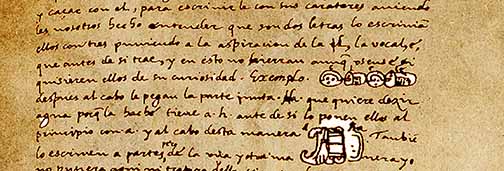 y caçar con el, para escrivirle con sus carateres aviendo
les nosotros hecho entender que son dos letras lo escrivian
ellos con tres puniendo a la aspiracion de la h, la vocal e,
que antes de si trae, y en esto no hierran aunq̃ osense si
quisieren ellos de su curiosidad. Exemplo.
despues al cabo le pegan la parte junta. Ha que quiere dezir
agua porq̃ la hache tiene a. h. ante de si lo ponen ellos al
principio con a. y al cabo desta manera a ha Tambie
lo escriven a partes de la una y otra ma nera yo
no pusiera aqui ni tratara dello